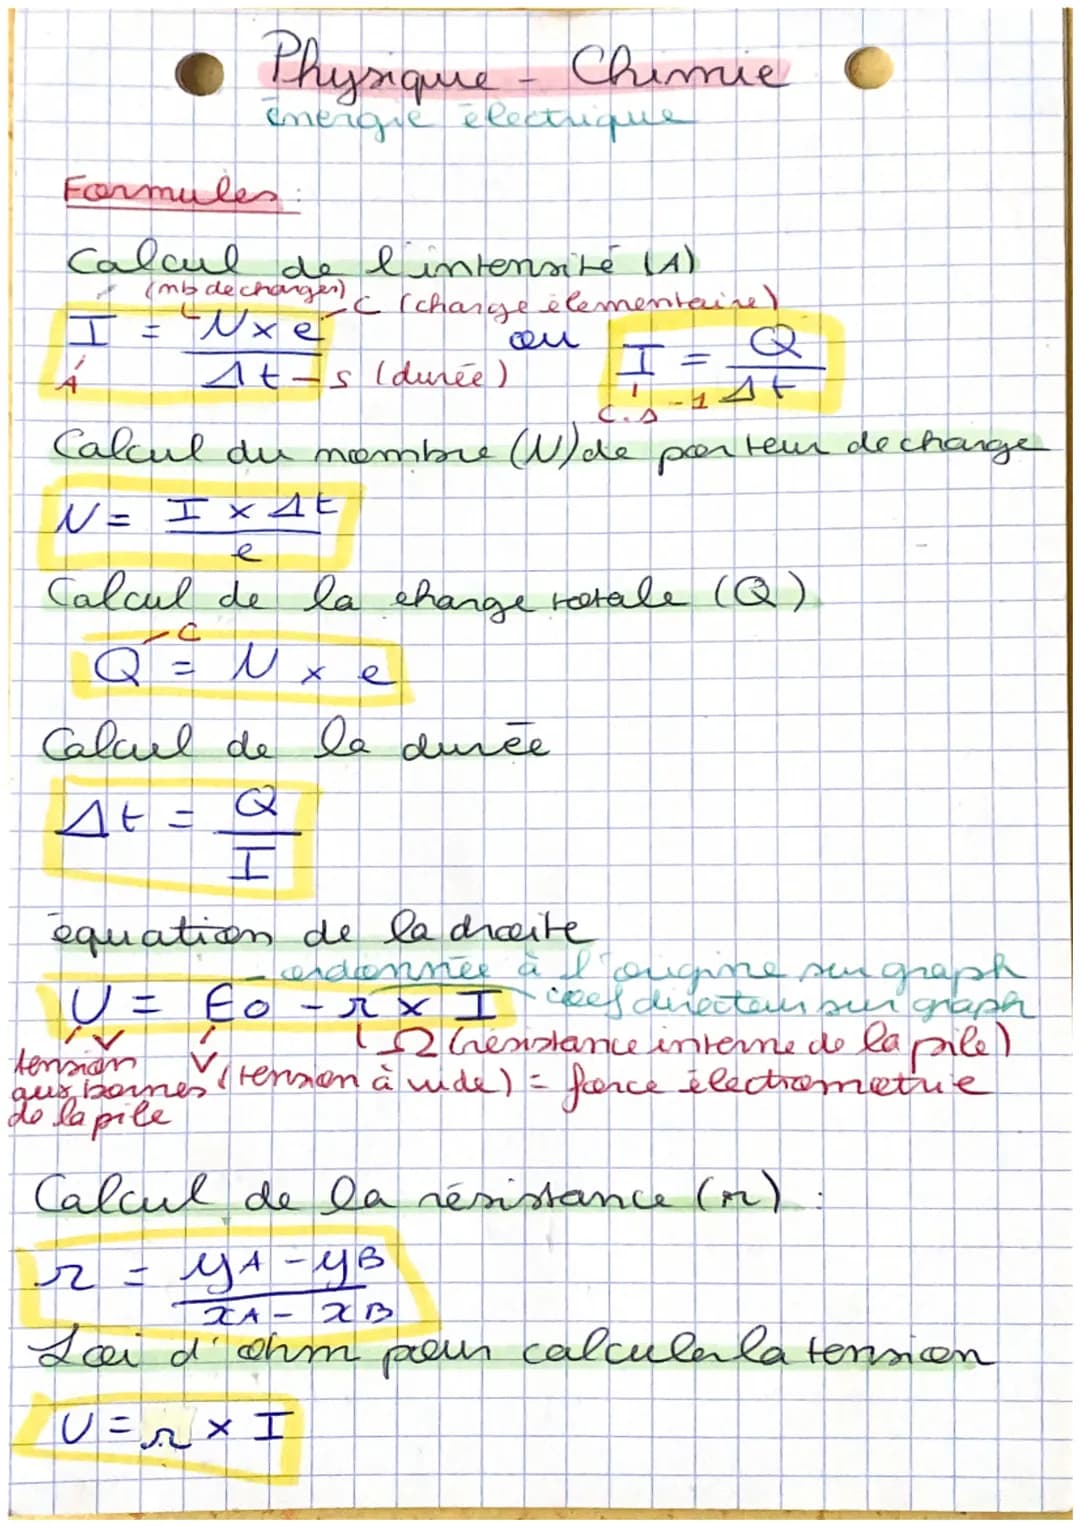 Physique - Chimie
énergie électrique
Formules :
Calcul de l'intensité (A)
(nb de charges) C (charge élementaire)
I = N x e ou I = Q
A Δt - s (durée) C.s-1 Δt
Calcul du nombre (N) de porteur de charge
N = I x Δt
e
Calcul de la charge totale (Q)
C
Q = N x e
Calcul de la durée
Δt = Q
I
équation de la droite
ordonnée à l'origine sur graph
U = E0 - r x I coef directeur sur graph
V Ω (résistance interne de la pile)
tension aux bornes de la pile
V (tension à vide) = force électromotrie
Calcul de la résistance (r) :
r = yA - yB
xA - xB
Loi d'ohm pour calculer la tension
U = r x I